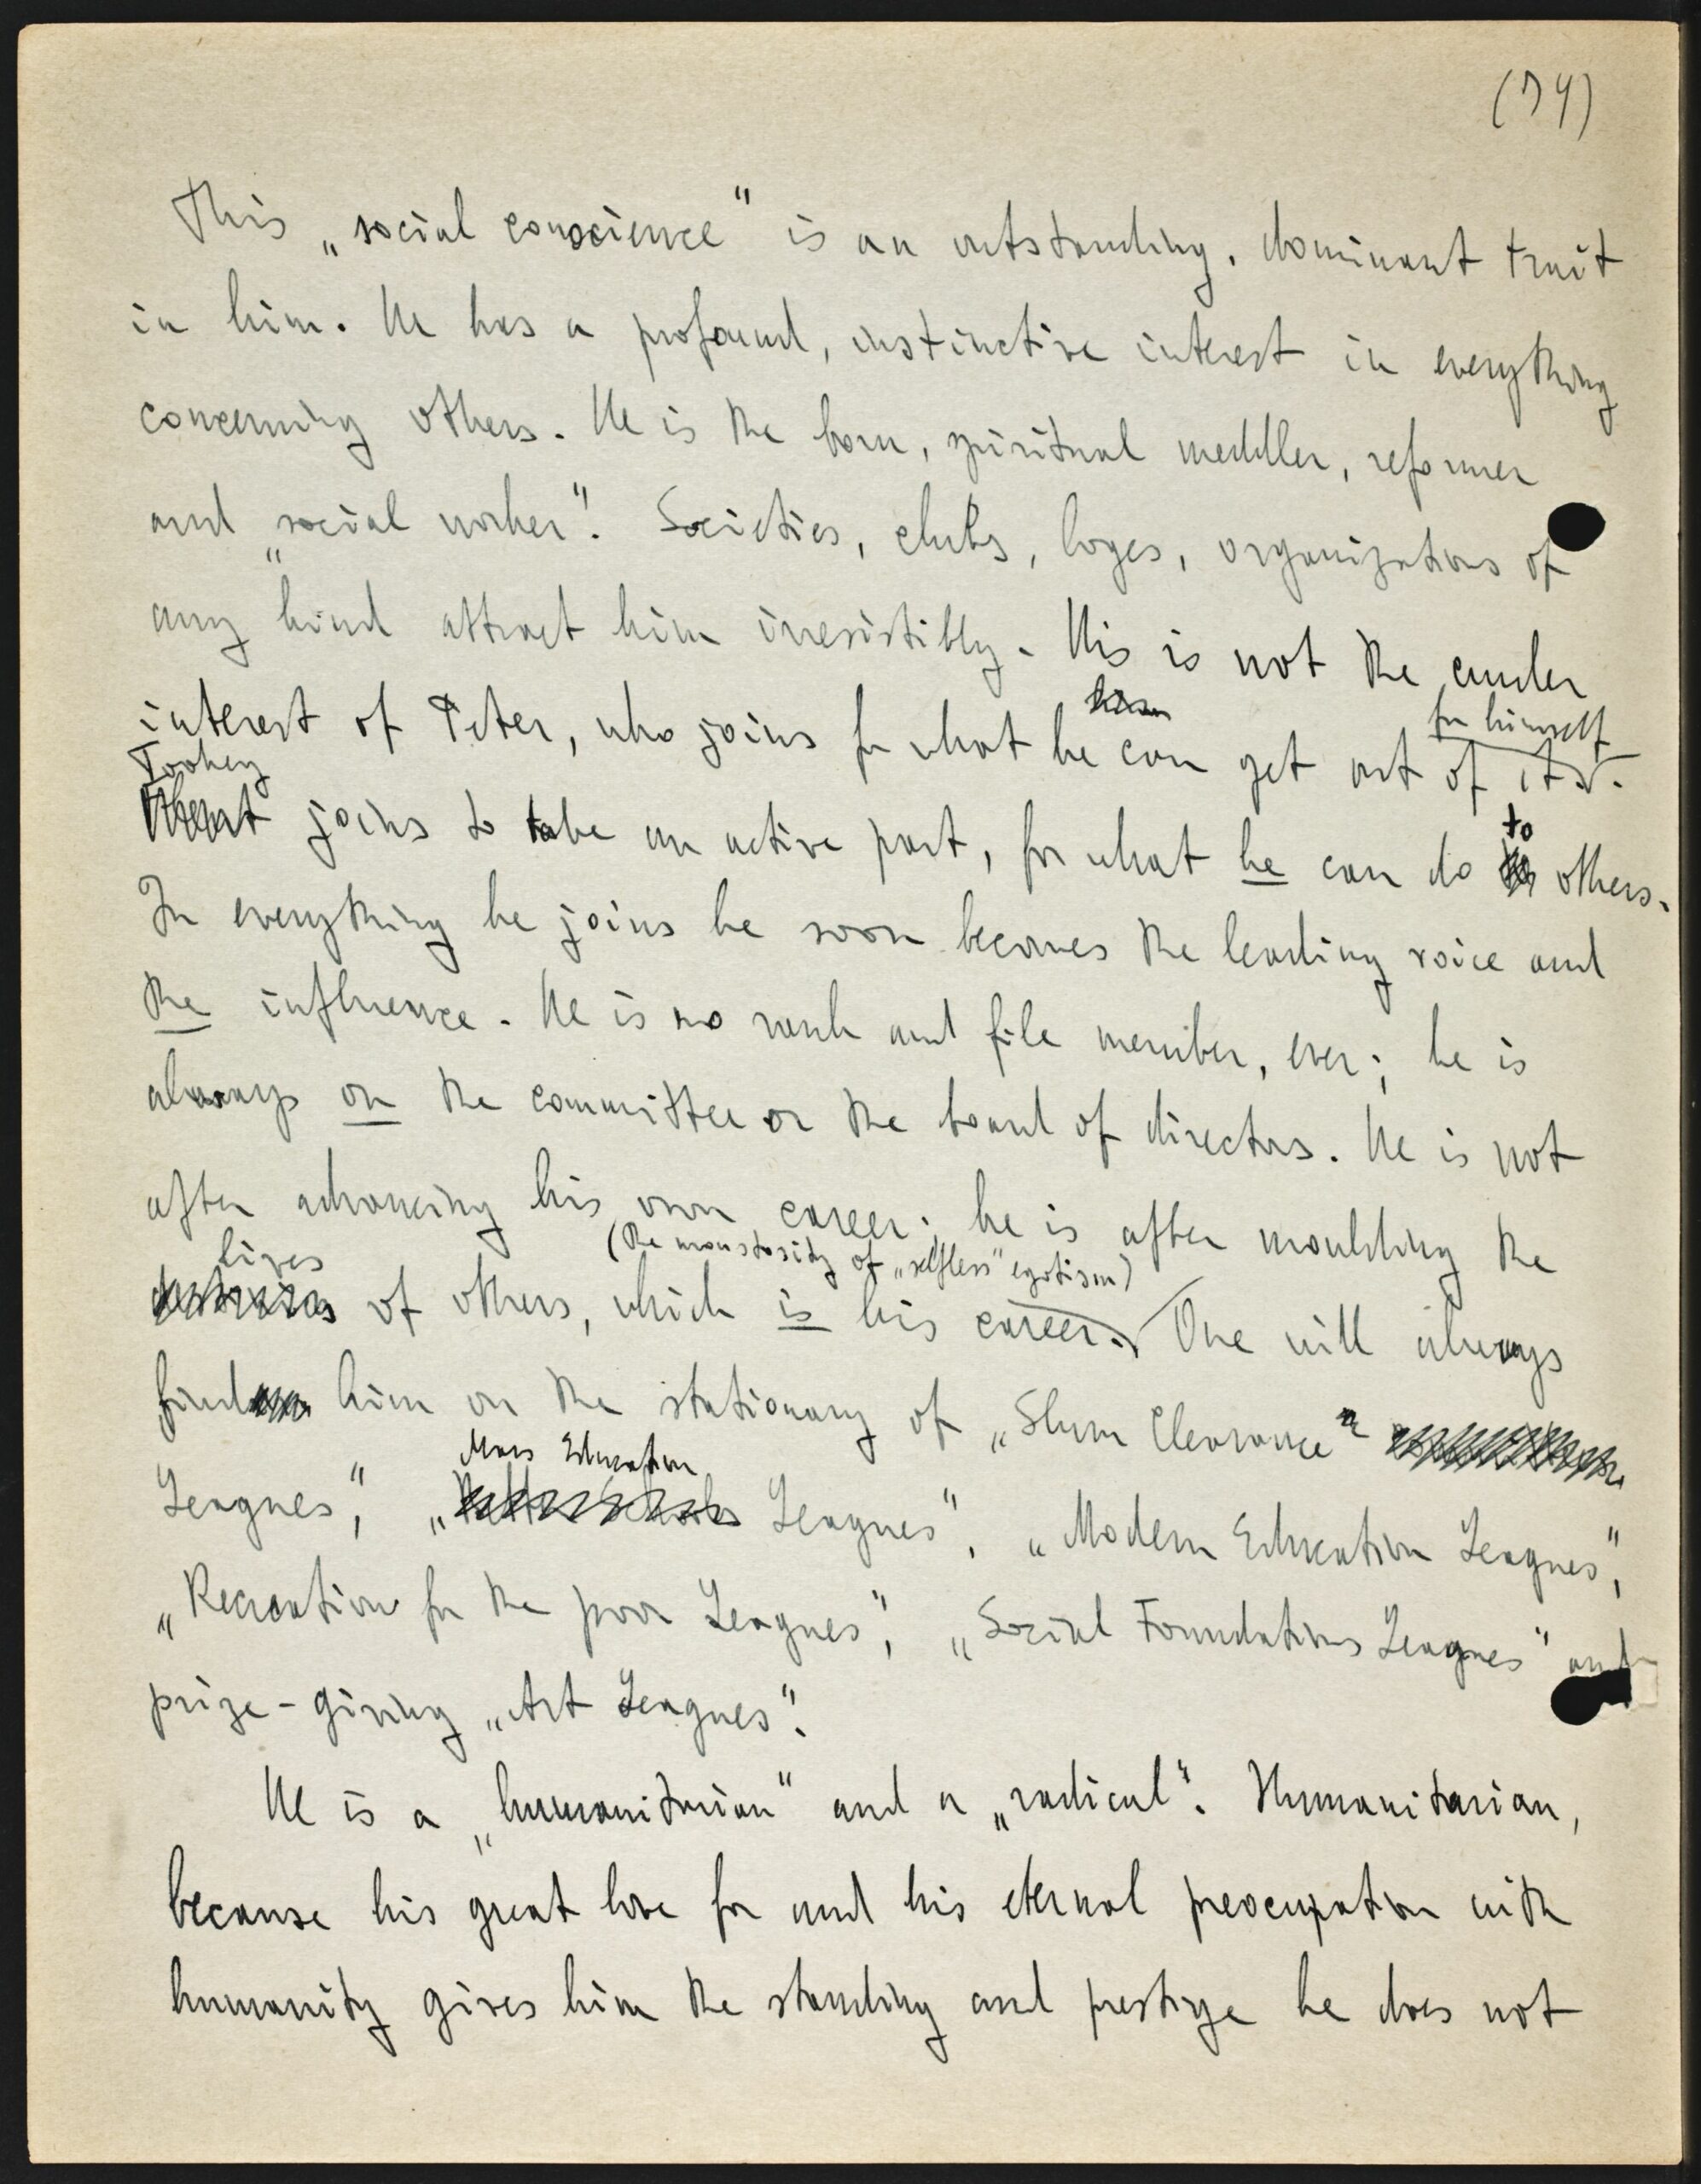 (74)
This „social conscience" is an outstanding, dominant trait
in him. He has a profound, instinctive interest in everything
concerning others. He is the born, spiritual meddler, reformer
and „social worker". Societies, clubs, loges, organizations of
any kind attract him irresistibly. His is not the cruder
interest of Peter, who joins for what he can get out of it for himself.
Toohey joins to take an active part, for what he can do to others.
In everything he joins he soon becomes the leading voice and
the influence. He is no rank and file member, ever; he is
always on the committee or the board of directors. He is not
after advancing his own career; he is after moulding the
lives of others, which is his career. (The monstosity of „selfless" egotism) One will always
find him on the stationary of „Slum Clearance"
Leagues", „Mass Education Leagues", „Modern Education Leagues",
„Recreation for the poor Leagues", „Social Foundations Leagues" and
prize-giving „Art Leagues".
He is a „humanitarian" and a „radical". Humanitarian,
because his great love for and his eternal preocupation with
humanity gives him the standing and prestige he does not